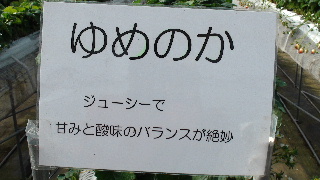 ゆめのか
ジューシーで
甘みと酸味のバランスが絶妙